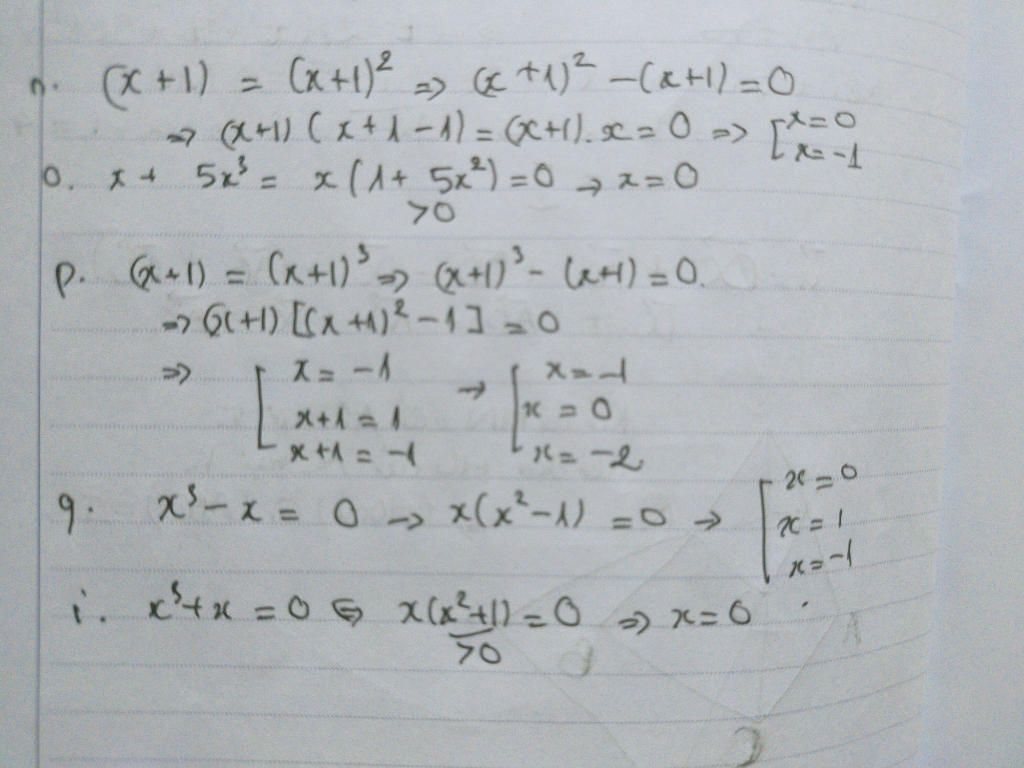 n. (x+1) = (x+1)² => (x+1)² - (x+1) = 0
=> (x+1)(x+1-1) = (x+1).x = 0 => [ x=0
x=-1
o. x + 5x³ = x(1+ 5x²) = 0 → x=0
>0
p. (x+1) = (x+1)³ => (x+1)³ - (x+1) = 0.
=> (x+1)[(x+1)² - 1] = 0
=> [ x = -1 → [ x = -1
x+1 = 1 x = 0
x+1 = -1 x = -2
q. x³ - x = 0 → x(x²-1) = 0 → [ x = 0
x = 1
x = -1
i. x³+x = 0 ⇔ x(x²+1) = 0 => x=0
>0